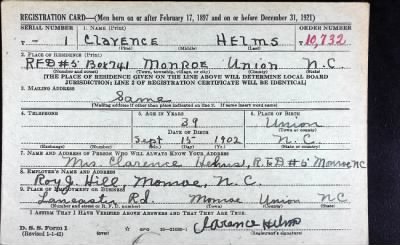 REGISTRATION CARD—(Men born on or after February 17, 1897 and on or before December 31, 1921)
SERIAL NUMBER 1. NAME (Print) ORDER NUMBER
T- Clarence Helms T10,732
(First) (Middle) (Last)
2. PLACE OF RESIDENCE (Print)
RFD#5 Box 741 Monroe Union N.C.
(Number and street) (Town, township, village, or city) (County) (State)
[THE PLACE OF RESIDENCE GIVEN ON THE LINE ABOVE WILL DETERMINE LOCAL BOARD
JURISDICTION; LINE 2 OF REGISTRATION CERTIFICATE WILL BE IDENTICAL]
3. MAILING ADDRESS
Same
[Mailing address if other than place indicated on line 2. If same insert word same]
4. TELEPHONE 5. AGE IN YEARS 6. PLACE OF BIRTH
39 Union
DATE OF BIRTH (Town or county)
Sept 15 1902 N.C.
(Exchange) (Number) (Mo.) (Day) (Yr.) (State or country)
7. NAME AND ADDRESS OF PERSON WHO WILL ALWAYS KNOW YOUR ADDRESS
Mrs. Clarence Helms, R.F.D #5 Monroe NC
8. EMPLOYER'S NAME AND ADDRESS
Roy J. Hill Monroe, N.C.
9. PLACE OF EMPLOYMENT OR BUSINESS
Lancaster Rd. Monroe Union NC
(Number and street or R. F. D. number) (Town) (County) (State)
I AFFIRM THAT I HAVE VERIFIED ABOVE ANSWERS AND THAT THEY ARE TRUE.
D. S. S. Form 1 GPO Clarence Helms
(Revised 1-1-42) (Registrant's signature)